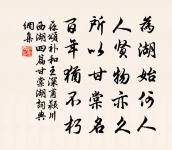 為湖始何人
人賢物亦久
所以甘棠名
百年猶不朽
蘇頌補和王深甫潁川
西湖四篇甘棠湖詞典
網集